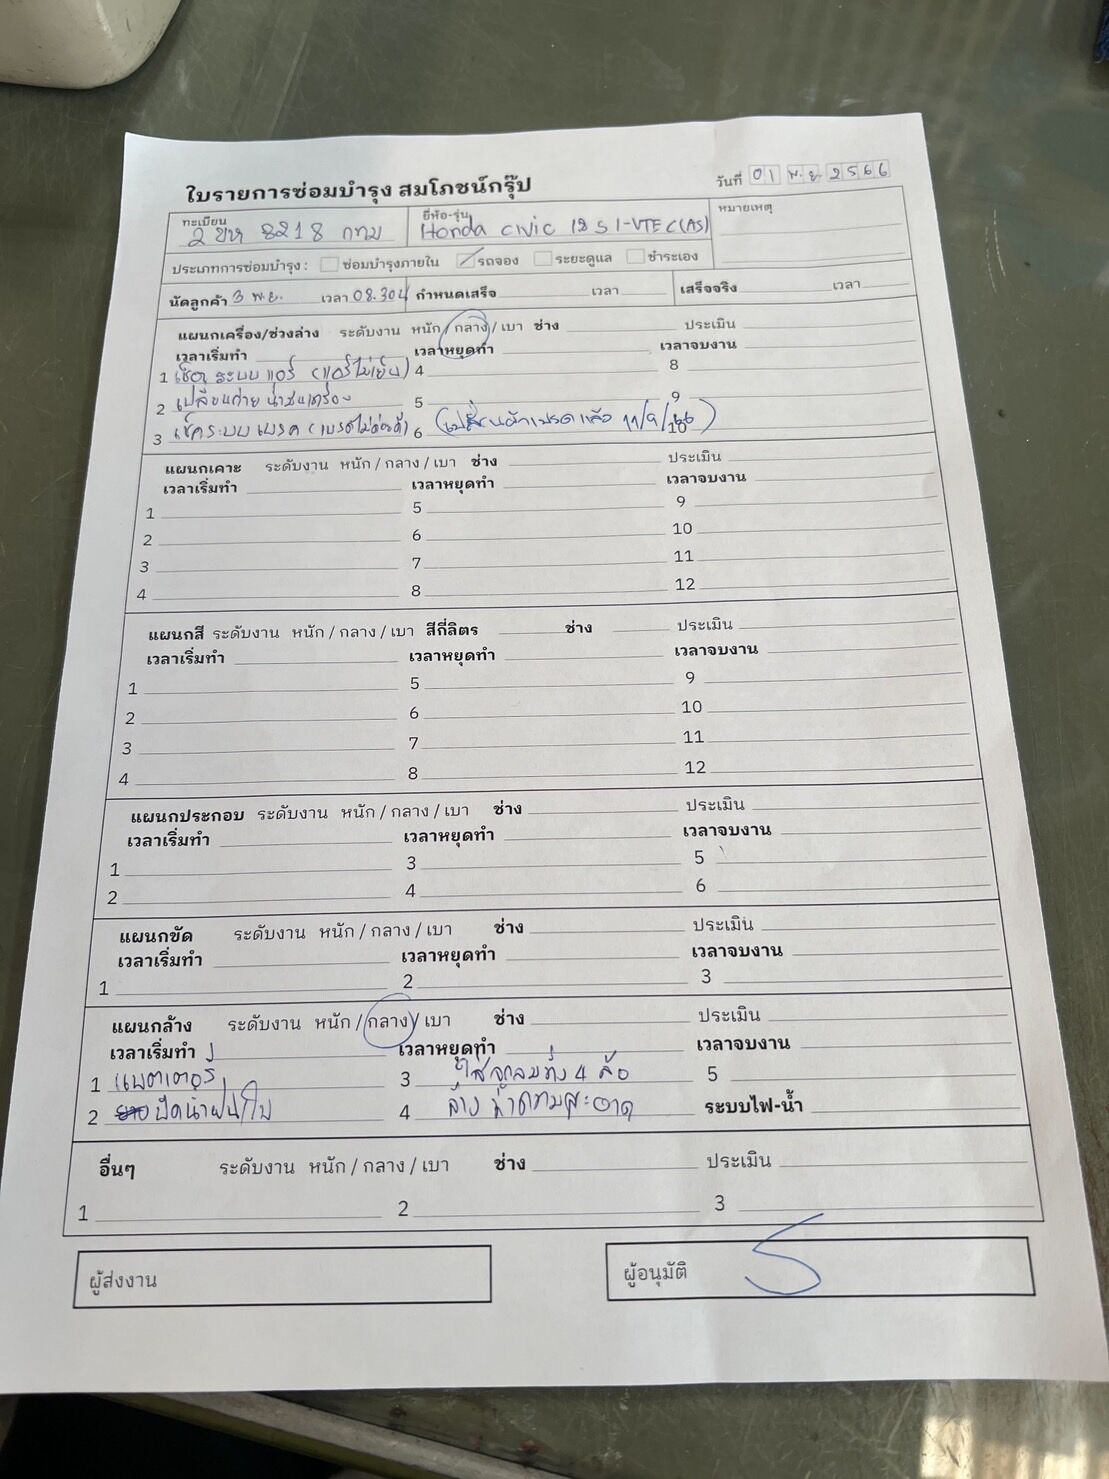 ใบรายการซ่อมบำรุง สมโภชน์กรุ๊ป
วันที่ 01 พ.ย. 2566
ทะเบียน ยี่ห้อ-รุ่น หมายเหตุ
2 ขห 8218 กทม Honda civic 1.8 S I-VTEC (AS)
ประเภทการซ่อมบำรุง : ซ่อมบำรุงภายใน รถจอง ระยะดูแล ชำระเอง
นัดลูกค้า 3 พ.ย. เวลา 08.30น กำหนดเสร็จ เวลา เสร็จจริง เวลา
แผนกเครื่อง/ช่วงล่าง ระดับงาน หนัก / กลาง / เบา ช่าง ประเมิน
เวลาเริ่มทำ เวลาหยุดทำ เวลาจบงาน
1 เช็ค ระบบ แอร์ (แอร์ไม่เย็น) 4 8
2 เปลี่ยนถ่าย น้ำมันเครื่อง 5 9
3 เช็คระบบ เบรค (เบรคไม่ค่อยดี) 6 (เปลี่ยนผ้าเบรคแล้ว 11/9/66) 10
แผนกเคาะ ระดับงาน หนัก / กลาง / เบา ช่าง ประเมิน
เวลาเริ่มทำ เวลาหยุดทำ เวลาจบงาน
1 5 9
2 6 10
3 7 11
4 8 12
แผนกสี ระดับงาน หนัก / กลาง / เบา สีกี่ลิตร ช่าง ประเมิน
เวลาเริ่มทำ เวลาหยุดทำ เวลาจบงาน
1 5 9
2 6 10
3 7 11
4 8 12
แผนกประกอบ ระดับงาน หนัก / กลาง / เบา ช่าง ประเมิน
เวลาเริ่มทำ เวลาหยุดทำ เวลาจบงาน
1 3 5
2 4 6
แผนกขัด ระดับงาน หนัก / กลาง / เบา ช่าง ประเมิน
เวลาเริ่มทำ เวลาหยุดทำ เวลาจบงาน
1 2 3
แผนกล้าง ระดับงาน หนัก / กลาง / เบา ช่าง ประเมิน
เวลาเริ่มทำ เวลาหยุดทำ เวลาจบงาน
1 แบตเตอรี่ 3 ใส่จุกลมทั้ง 4 ล้อ 5
2 ปัดน้ำฝน 4 ล้าง ทำความสะอาด ระบบไฟ-น้ำ
อื่นๆ ระดับงาน หนัก / กลาง / เบา ช่าง ประเมิน
1 2 3
ผู้ส่งงาน ผู้อนุมัติ